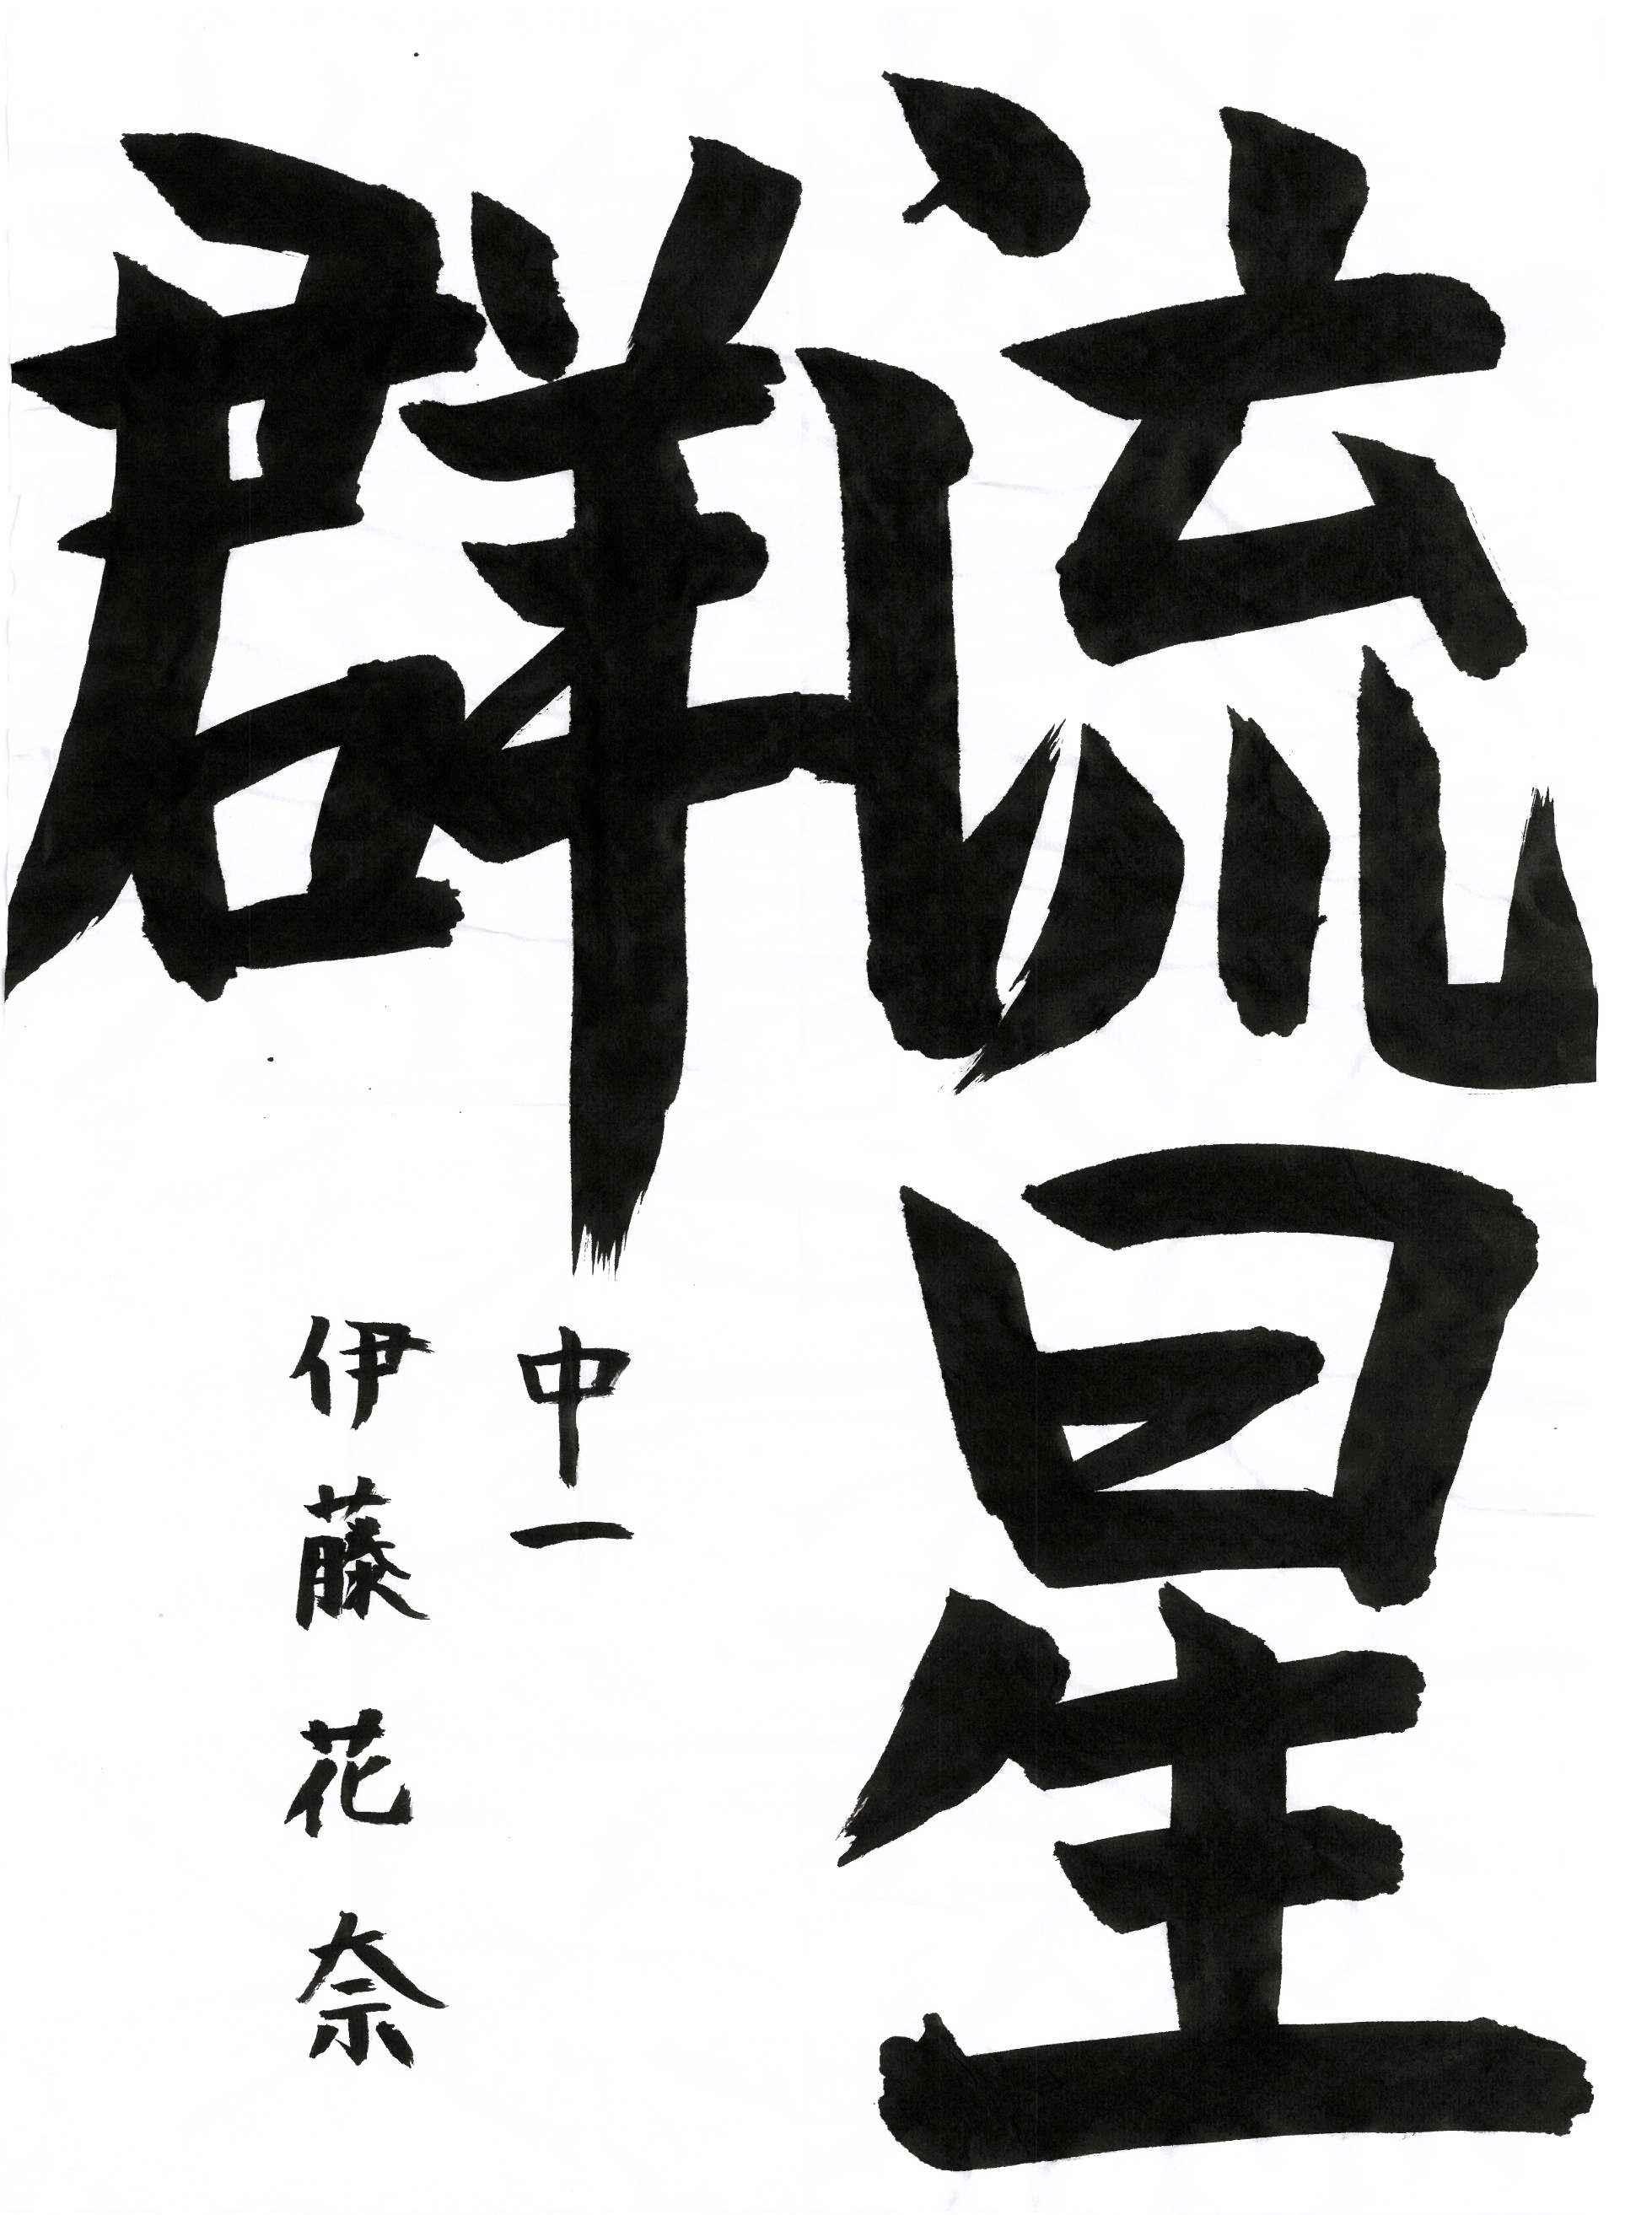 流星
群
中一
伊藤花奈